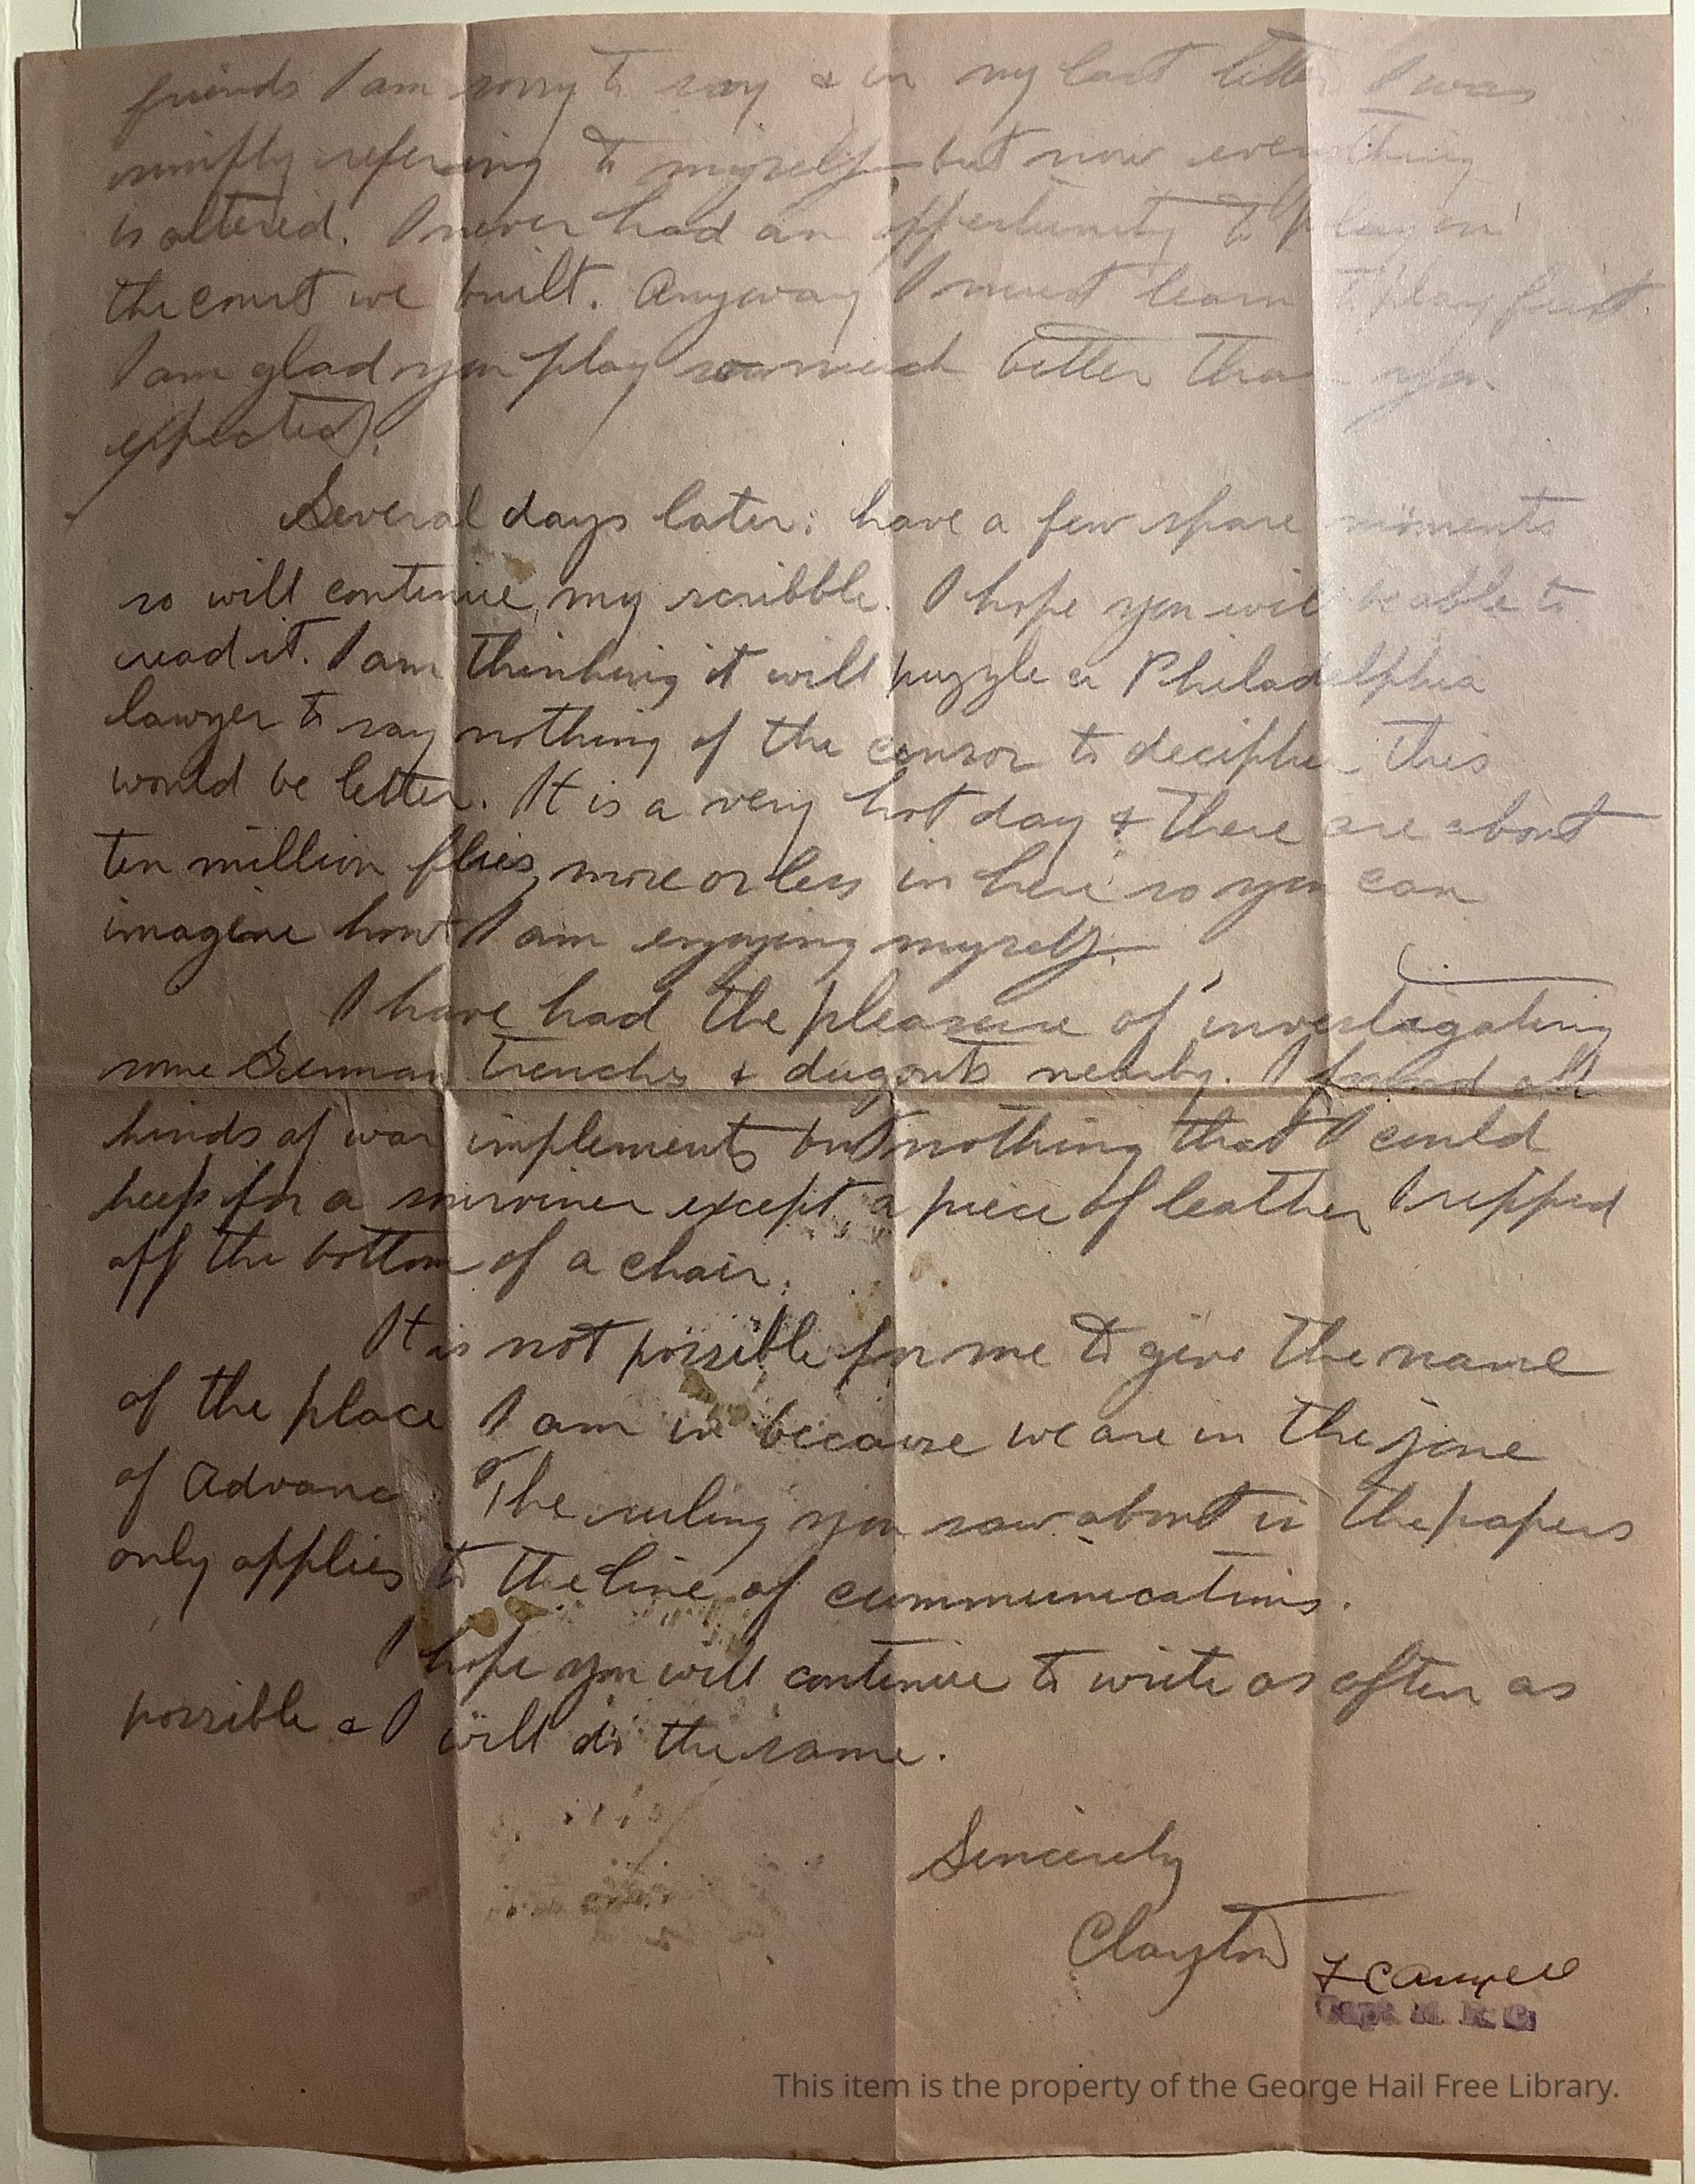 friends I am sorry to say & in my last letter I was
simply refering to myself, but now everything
is altered. I never had an oppertunity to play on
the court we built. Anyway I must learn to play first.
I am glad you play so much better than you
expected.
Several days later: have a few spare moments
so will continue my scribble. I hope you will be able to
read it. I am thinking it will puzzle a Philadelphia
lawyer to say nothing of the censor to decipher this
would be letter. It is a very hot day & there are about
ten million flies, more or less in here so you can
imagine how I am enjoying myself.
I have had the pleasure of investagating
some German trenches & dugouts nearby. I found all
kinds of war implements but nothing that I could
keep for a souviner except a piece of leather I ripped
off the bottom of a chair.
It is not possible for me to give the name
of the place I am in because we are in the zone
of Advance. The ruling you saw about in the papers
only applies to the line of communications.
I hope you will continue to write as often as
possible & I will do the same.
Sincerely
Clayton
Capt. M. R. C.
This item is the property of the George Hail Free Library.